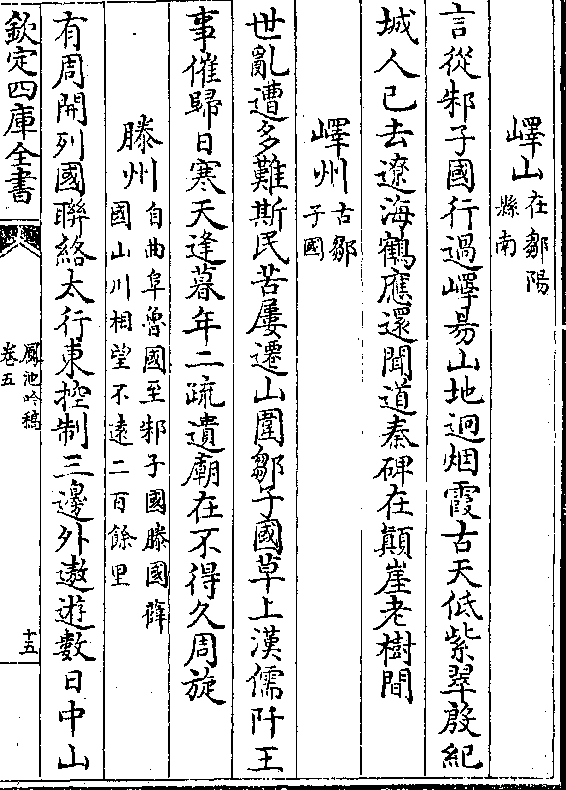 嶧山在鄒陽
縣南
言從邾子國行過嶧昜山地迥烟霞古天低紫翠殷紀
城人已去遼海鶴應還聞道秦碑在顛崖老樹間
嶧州古鄒
子國
世亂遭多難斯民苦屢遷山圍鄒子國草上漢儒阡王
事催歸日寒天逢暮年二疏遺廟在不得久周旋
滕州自曲阜魯國至邾子國滕國薛
國山川相望不遠二百餘里
有周開列國聯絡太行東控制三邊外遨遊數日中山
欽定四庫全書
鳳池吟稿
卷五
十五